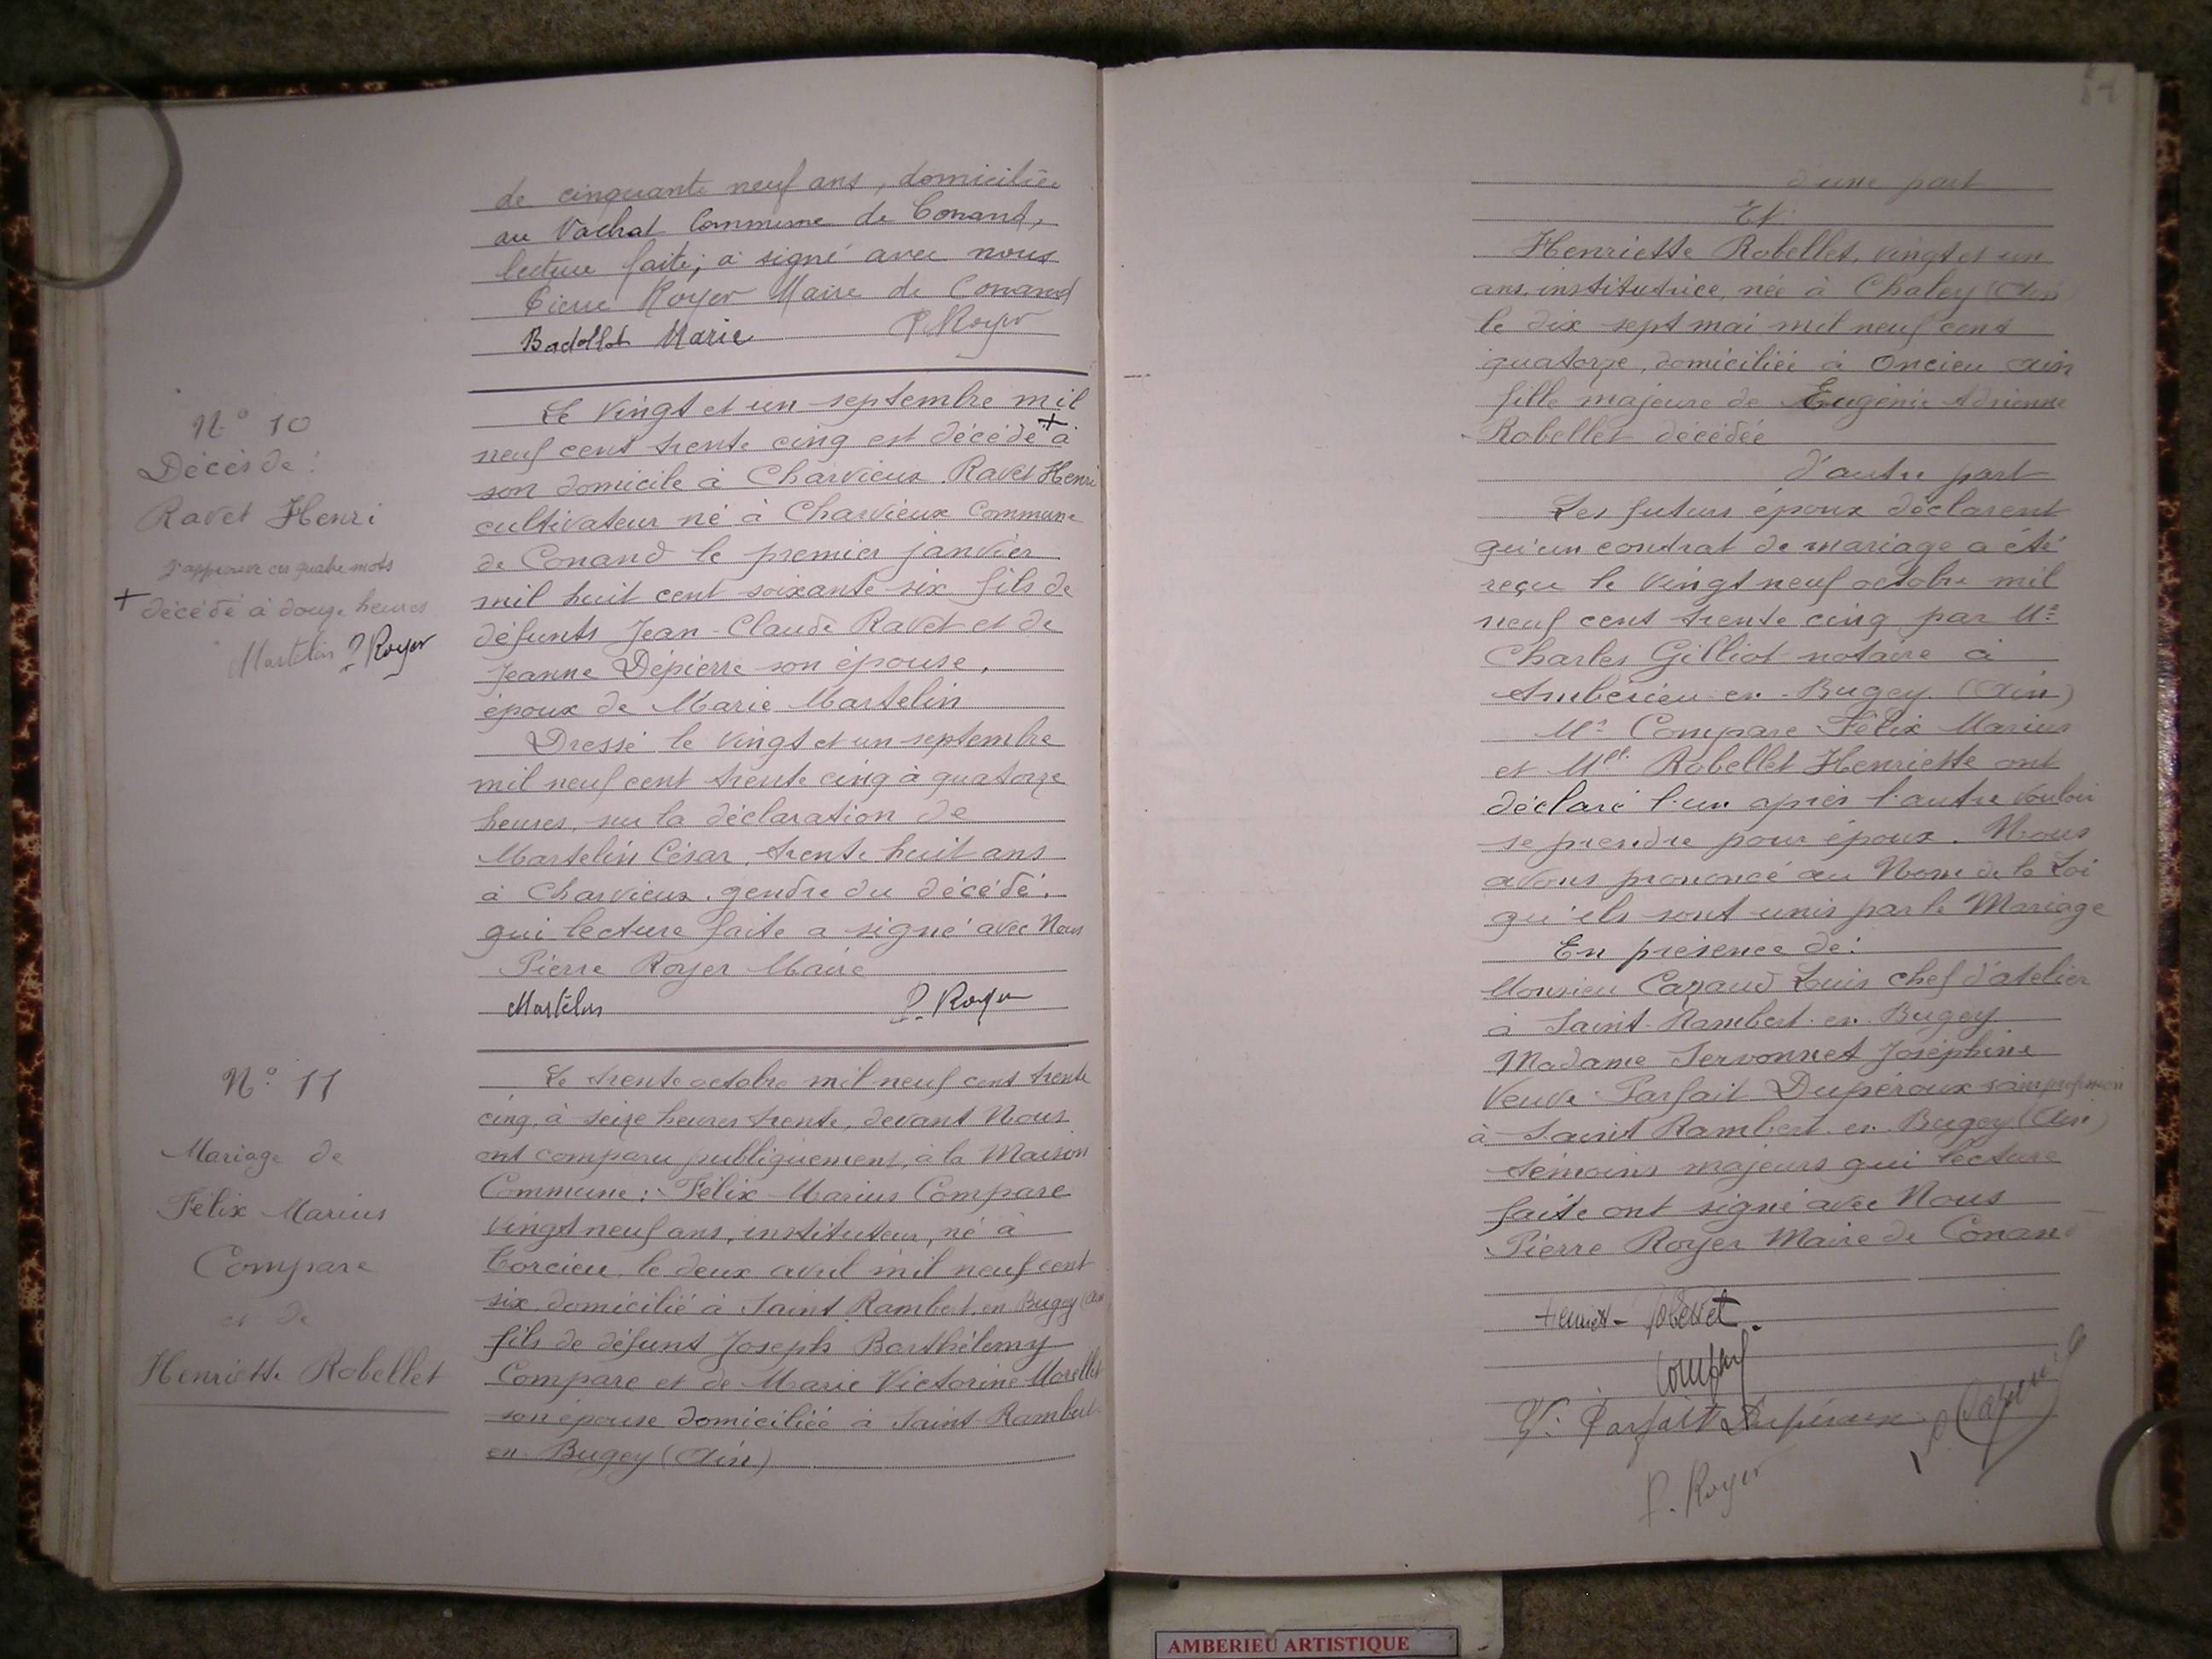 de cinquante neuf ans, domiciliée
au Vachat Commune de Conand,
lecture faite, a signé avec nous
Pierre Royer Maire de Conand
Badollot Marie P. Royer
N° 10
Décès de :
Ravet Henri
J'approuve ces quatre mots
+ décédé à douze heures
Martelin P. Royer
Le vingt et un septembre mil
neuf cent trente cinq est décédé + à
son domicile à Charvieux Ravet Henri
cultivateur né à Charvieux Commune
de Conand le premier janvier
mil huit cent soixante six fils de
défunts Jean-Claude Ravet et de
Jeanne Dépierre son épouse,
époux de Marie Martelin
Dressé le vingt et un septembre
mil neuf cent trente cinq à quatorze
heures, sur la déclaration de
Martelin César, trente huit ans
à Charvieux, gendre du décédé,
qui lecture faite a signé avec Nous
Pierre Royer Maire
Martelin P. Royer
N° 11
Mariage de
Félix Marius
Compare
et de
Henriette Robellet
Le trente octobre mil neuf cent trente
cinq, à seize heures trente, devant Nous
ont comparu publiquement, à la Maison
Commune : Félix Marius Compare
vingt neuf ans, instituteur, né à
Torcieu, le deux avril mil neuf cent
six, domicilié à Saint Rambert en Bugey (Ain
fils de défunt Joseph Barthélemy
Compare et de Marie Victorine Morellet
son épouse domiciliée à Saint-Rambert
en Bugey (Ain)
d'une part
Et
Henriette Robellet, vingt et un
ans, institutrice, née à Chaley (Ain)
le dix sept mai mil neuf cent
quatorze, domiciliée à Oncieu Ain
fille majeure de Eugénie Adrienne
Robellet décédée
d'autre part
Les futurs époux déclarent
qu'un contrat de mariage a été
reçu le vingt neuf octobre mil
neuf cent trente cinq par Me
Charles Gilliot notaire à
Ambérieu-en-Bugey (Ain)
Mr Compare Félix Marius
et Mlle Robellet Henriette ont
déclaré l'un après l'autre vouloir
se prendre pour époux. Nous
avons prononcé au Nom de la Loi
qu'ils sont unis par le Mariage
En présence de :
Monsieur Cazaud Louis chef d'atelier
à Saint-Rambert-en-Bugey
Madame Servonnet Joséphine
Veuve Parfait Dupéroux sans profession
à Saint Rambert en Bugey (Ain)
témoins majeurs qui lecture
faite ont signé avec Nous
Pierre Royer Maire de Conand
Henriette Robellet
Compare
Ve Parfait Dupéroux L. Cazaud
P. Royer
AMBERIEU ARTISTIQUE